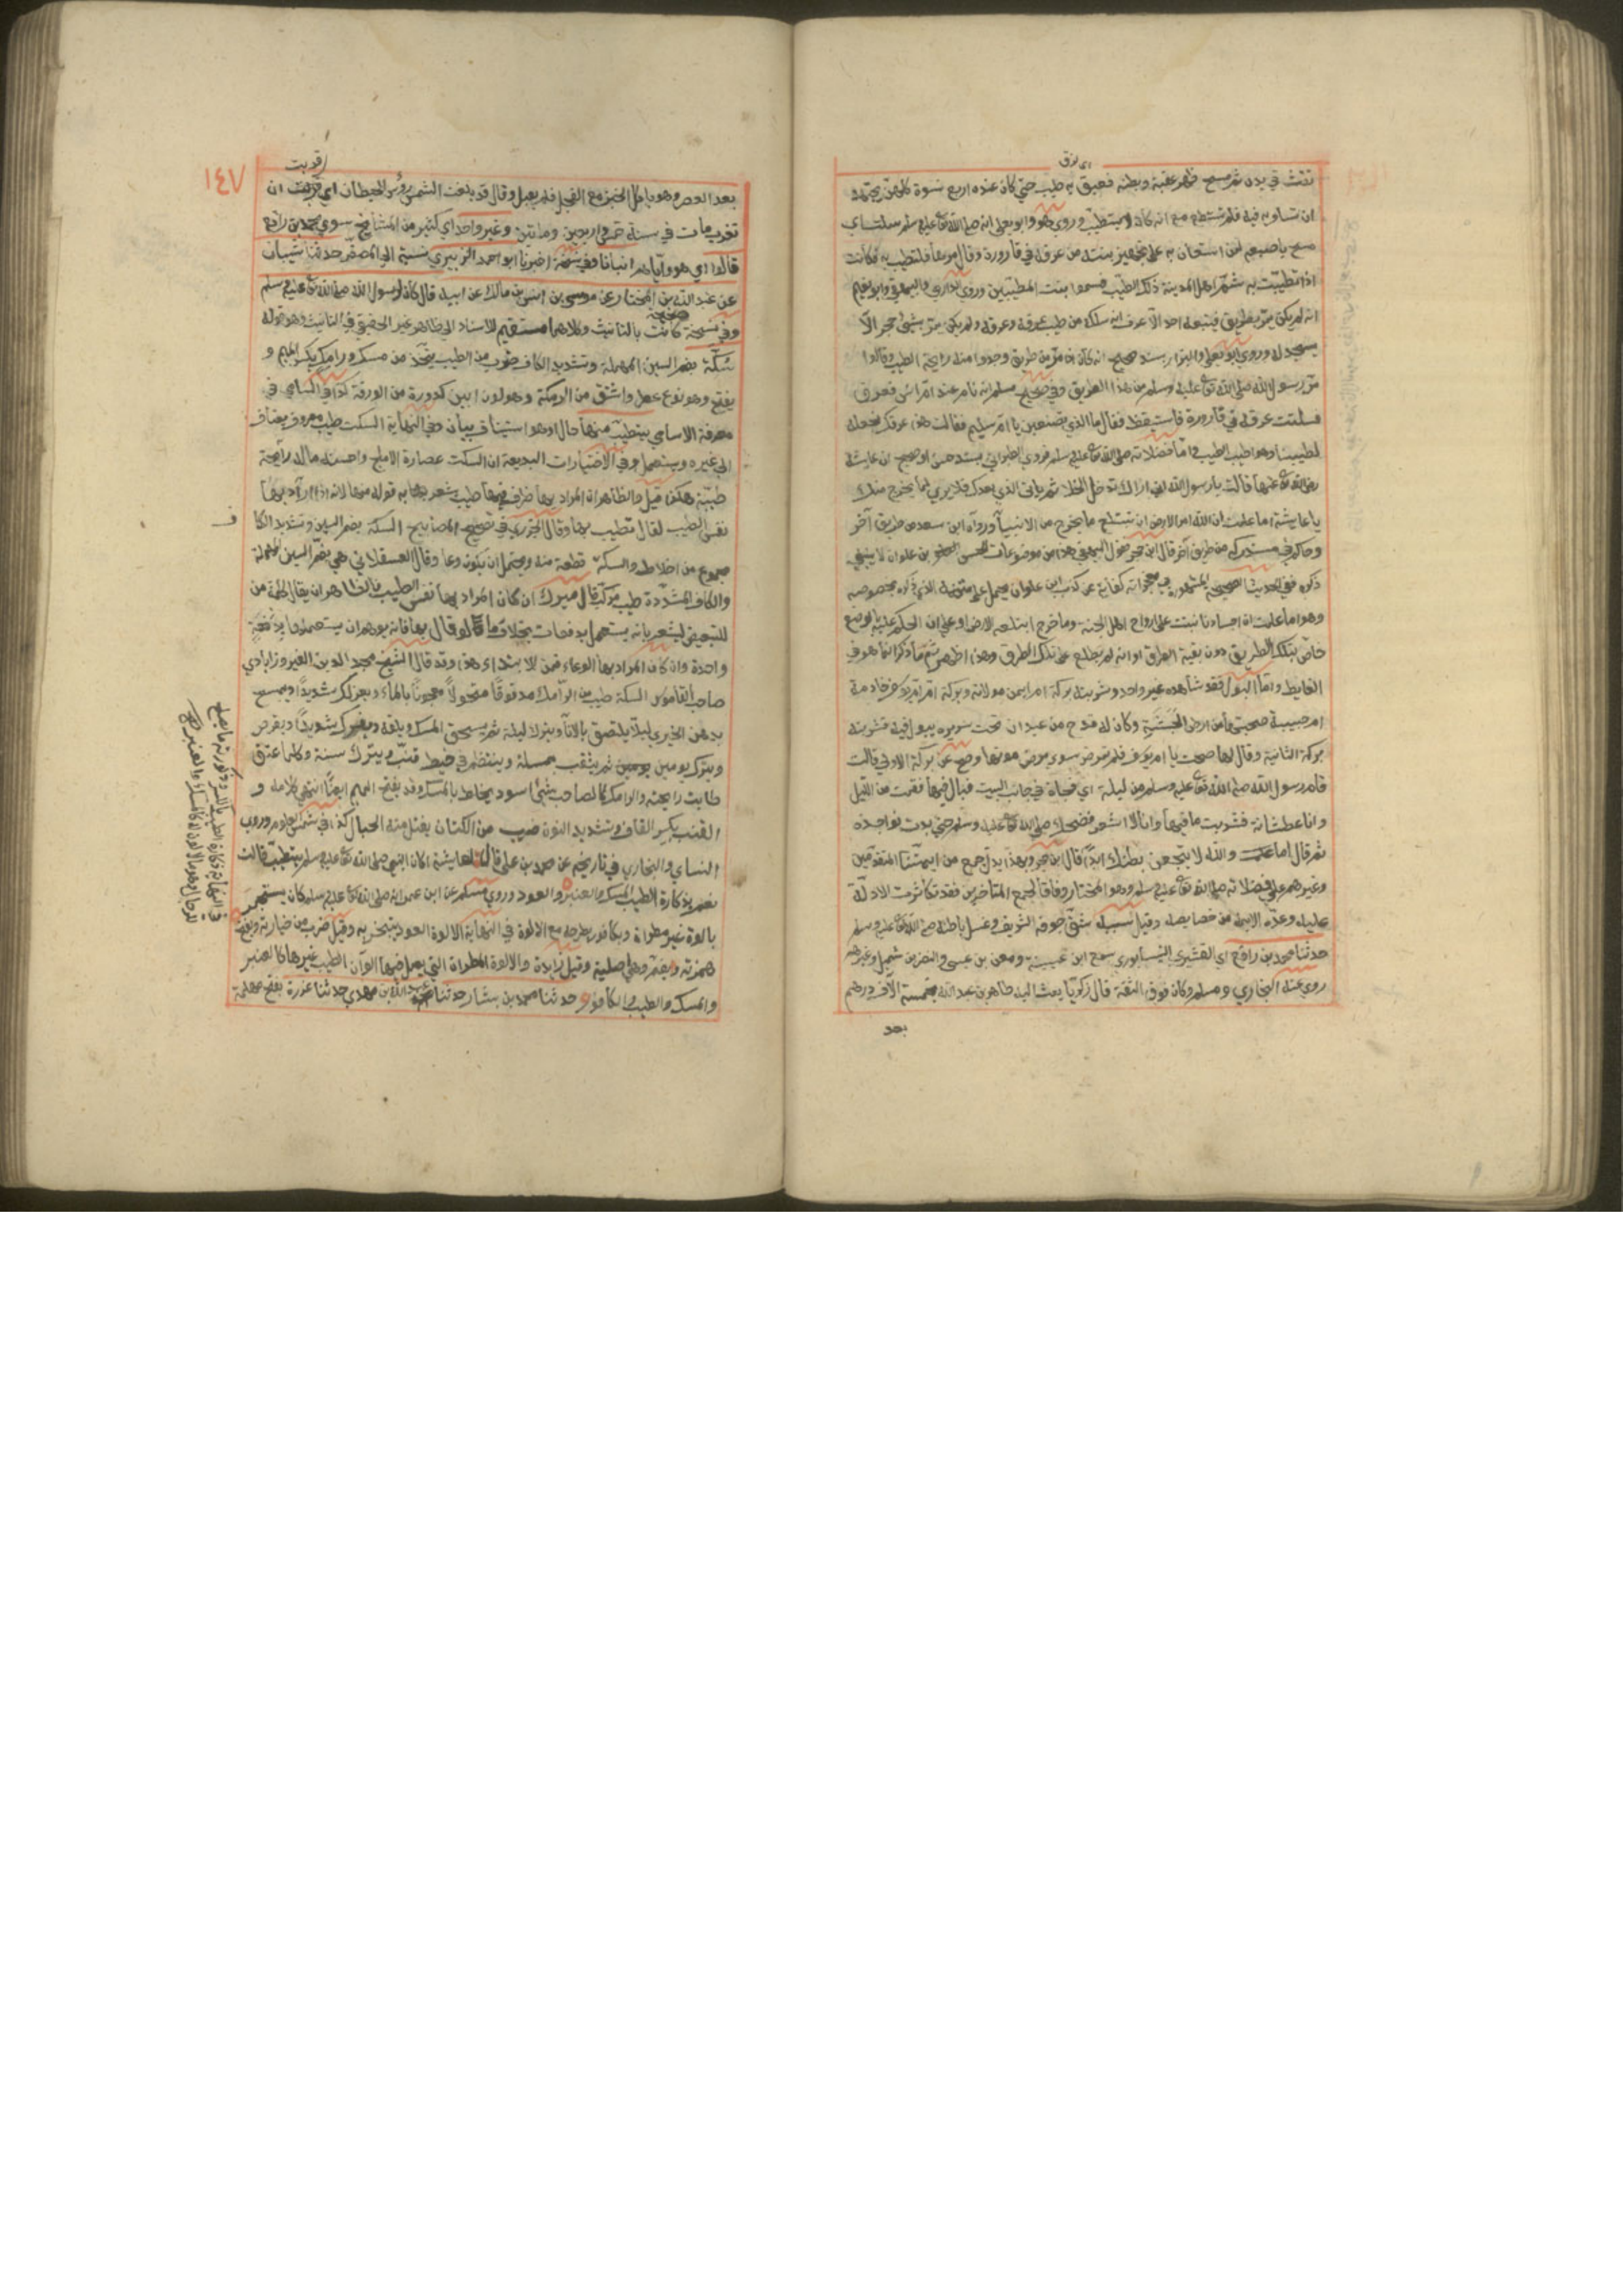 اي بزق
نفث في يده ثم مسح ظهر عقبة وبطنه فعبق به طيب حتى كان عنده اربع نسوة كلهن يجتهد
ان تساويه فيه فلم تستطع مع انه كان لا يتطيب وروى هو وابو يعلى انه صلى الله تعالى عليه وسلم سلت
لمن استعان به على تجهيز بنته من عرقه في قارورة وقال مرها فلتطيب به فكانت
اذا تطيبت به شم اهل المدينة ذلك الطيب فسموا بيت المطيبين وروى الدارمي والبيهقي وابو نعيم
انه لم يكن يمر بطريق فيتبعه احد الا عرف انه سلكه من طيب عرقه وعرفه ولم يكن يمر بشئ حجر الا
يسجد له وروى ابو يعلى والبزار بسند صحيح انه كان اذا مر من طريق وجدوا منه رايحة الطيب وقالوا
مر رسول الله صلى الله تعالى عليه وسلم من هذا الطريق وفي صحيح مسلم انه نام عند ام انس فعرق
فسلتت عرقه في قارورة فاستيقظ فقال ما الذي تصنعين يا ام سليم فقالت هذا عرقك نجعله
لطيبنا وهو اطيب الطيب واما فضلاته صلى الله تعالى عليه وسلم فروى الطبراني بسند حسن او صحيح ان عايشة
رضي الله تعالى عنها قالت يا رسول الله اني اراك تدخل الخلا ثم ياتي الذي بعدك فلا يرى لما يخرج منك
يا عايشة اما علمت ان الله امر الارض ان تبتلع ما يخرج من الانبيآ ورواه ابن سعد من طريق آخر
وحاكم في مستدركه من طريق آخر قال ابن حجر فقول البيهقي هذا من موضوعات الحسين بن علوان لا ينبغي
ذكره ففي الحديث الصحيحة المشهورة في معجزاته كفاية عن كذب ابن علوان يحمل على
وهو اما علمت ان اجسادنا نبتت على ارواح اهل الجنة وما خرج ابتلعه الارض او على ان الحكم عليه بالوضع
خاص بتلك الطريق دون بقية الطرق او انه لم يطلع على تلك الطرق وهذا اظهر ثم ما ذكر انما هو في
الغايط واما البول فقد شاهده غير واحد وشربته بركة ام ايمن مولاته وبركة ام يوسف خادمة
ام حبيبة صحبتها من ارض الحبشية وكان له قدح من عيدان تحت سريره يبول فيه فشربته
بركة الثانية وقال لها صحت يا ام يوسف فلم تمرض سوى مرض موتها وصح عن بركة الاولى قالت
قام رسول الله صلى الله تعالى عليه وسلم من ليلة اي فجاة في جانب البيت فبال فيها فقمت من الليل
وانا عطشانة فشربت ما فيها وانا لا اشعر فضحك صلى الله تعالى عليه وسلم حتى بدت نواجذه
ثم قال اما علمت والله لا يتجعن بطنك ابدا قال ابن حجر وبهذا يدل جمع من ايمتنا المتقدمين
وغيرهم على فضلاته صلى الله تعالى عليه وسلم وهو المختار وفاقا لجمع المتاخرين فقد تكاثرت الادلة
عليه وعده الايمة من خصايصه وقيل سببه شق جوفه الشريف وغسل باطنه صلى الله تعالى عليه وسلم
حدثنا محمد بن رافع اي القشيري النيسابوري سمع ابن عيينة ومعن بن عيسى والنضر بن شميل وغيرهم
روى عنه البخاري ومسلم وكان فوق الثقة قال زكريا بعث اليه طاهر بن عبد الله بخمسة الآف درهم
بعد
١٤٧
بعد العصر وهو ياكل الخبز مع الفجل فلم يقبل وقال قد بلغت الشمس رؤس الحيطان اي قربت ان
تغرب مات في سنة خمس واربعين ومائتين وغير واحد اي كثير من المشايخ سوى محمد بن رافع
قالوا اي هو واياهم انبانا وفي نسخة اخبرنا ابو احمد الزبيري نسبة الى المصغر حدثنا شيبان
عن عبد الله بن المختار عن موسى بن انس بن مالك عن ابيه قال كان لرسول الله صلى الله تعالى عليه وسلم
وفي نسخة صحيحة كانت بالتانيث وكلاهما مستقيم للاسناد الى ظاهر غير الحقيقي في التانيث وهو قوله
سُكّة بضم السين المهملة وتشديد الكاف ضرب من الطيب يتخذ من مسك ورامك بكسر الميم و
يفتح وهو نوع عطر واشتق من الرمكة وهو لون ابين كدورة من الورقة كذا في السامي في
معرفة الاسامي يتطيب منها حال او هو استيناف بيان وفي النهاية السكت طيب معروف يضاف
الى غيره ويستعمل وفي الاختيارات البديعة ان السكت عصارة الاملج واحسنه ماله رآيحة
طيبة هكذا قيل والظاهر ان المراد بها ظرف فيها طيب يشعر به قوله منها لانه اذا اراد بها
نفس الطيب لقال يتطيب بها وقال الجزري في تصحيح المصابيح السكة بضم السين وتشديد الكا
مجموع من اخلاط والسكة قطعة منه ويحتمل ان يكون وعا وقال العسقلاني هي بضم السين المهملة
والكاف المشددة طيب مركب قال ميرك ان كان المراد بها نفس الطيب فالظاهر ان يقال كلمة من
للتبعيض ليشعر بانه يستعمل بدفعات بخلاف ما لو قال بها فانه يوهم ان يستعملها بدفعة
واحدة وان كان المراد بها الوعاء فمن للابتداء هذا وقد قال الشيخ مجد الدين الفيروزابادي
صاحب القاموس السكة طيب من الرامك مدقوقا منخولا معجونا بالماء ويعرك شديدا ويمسح
بدهن الخيري ليلا يلتصق بالاناء ويترك ليلة ثم يسحق المسك ويلقه ويعرك شديدا ويقرص
ويترك يومين ثم يثقب بمسلة وينتظم في خيط قنب ويترك سنة وكلما عتق
طابت رايحته والرامك كالصاحب شئ اسود يخلط بالمسك وقد يفتح الميم ايضا انتهى كلامه و
القنب بكسر القاف وتشديد النون ضرب من الكتان يفتل منه الحبال كذا في شمس العلوم وروى
النساي والبخاري في تاريخه عن محمد بن علي قال لعايشة اكان النبي صلى الله تعالى عليه وسلم يتطيب قالت
نعم بذكارة الطيب المسك والعنبر والعود وروى مسلم عن ابن عمر انه صلى الله تعالى عليه وسلم كان يستجمر
بالوة غير مطراة وبكافور يطرحه مع الالوة في النهاية الالوة العود يتبخر به وقيل ضرب من خياره وبفتح
همزته وبضم وهي اصلية وقيل زايدة والالوة المطراة التي يعمل فيها الوان الطيب غيرها كالعنبر
والمسك والطيب والكافور حدثنا محمد بن بشار حدثنا عبد الله بن مهدي حدثنا عزرة بفتح مهملة